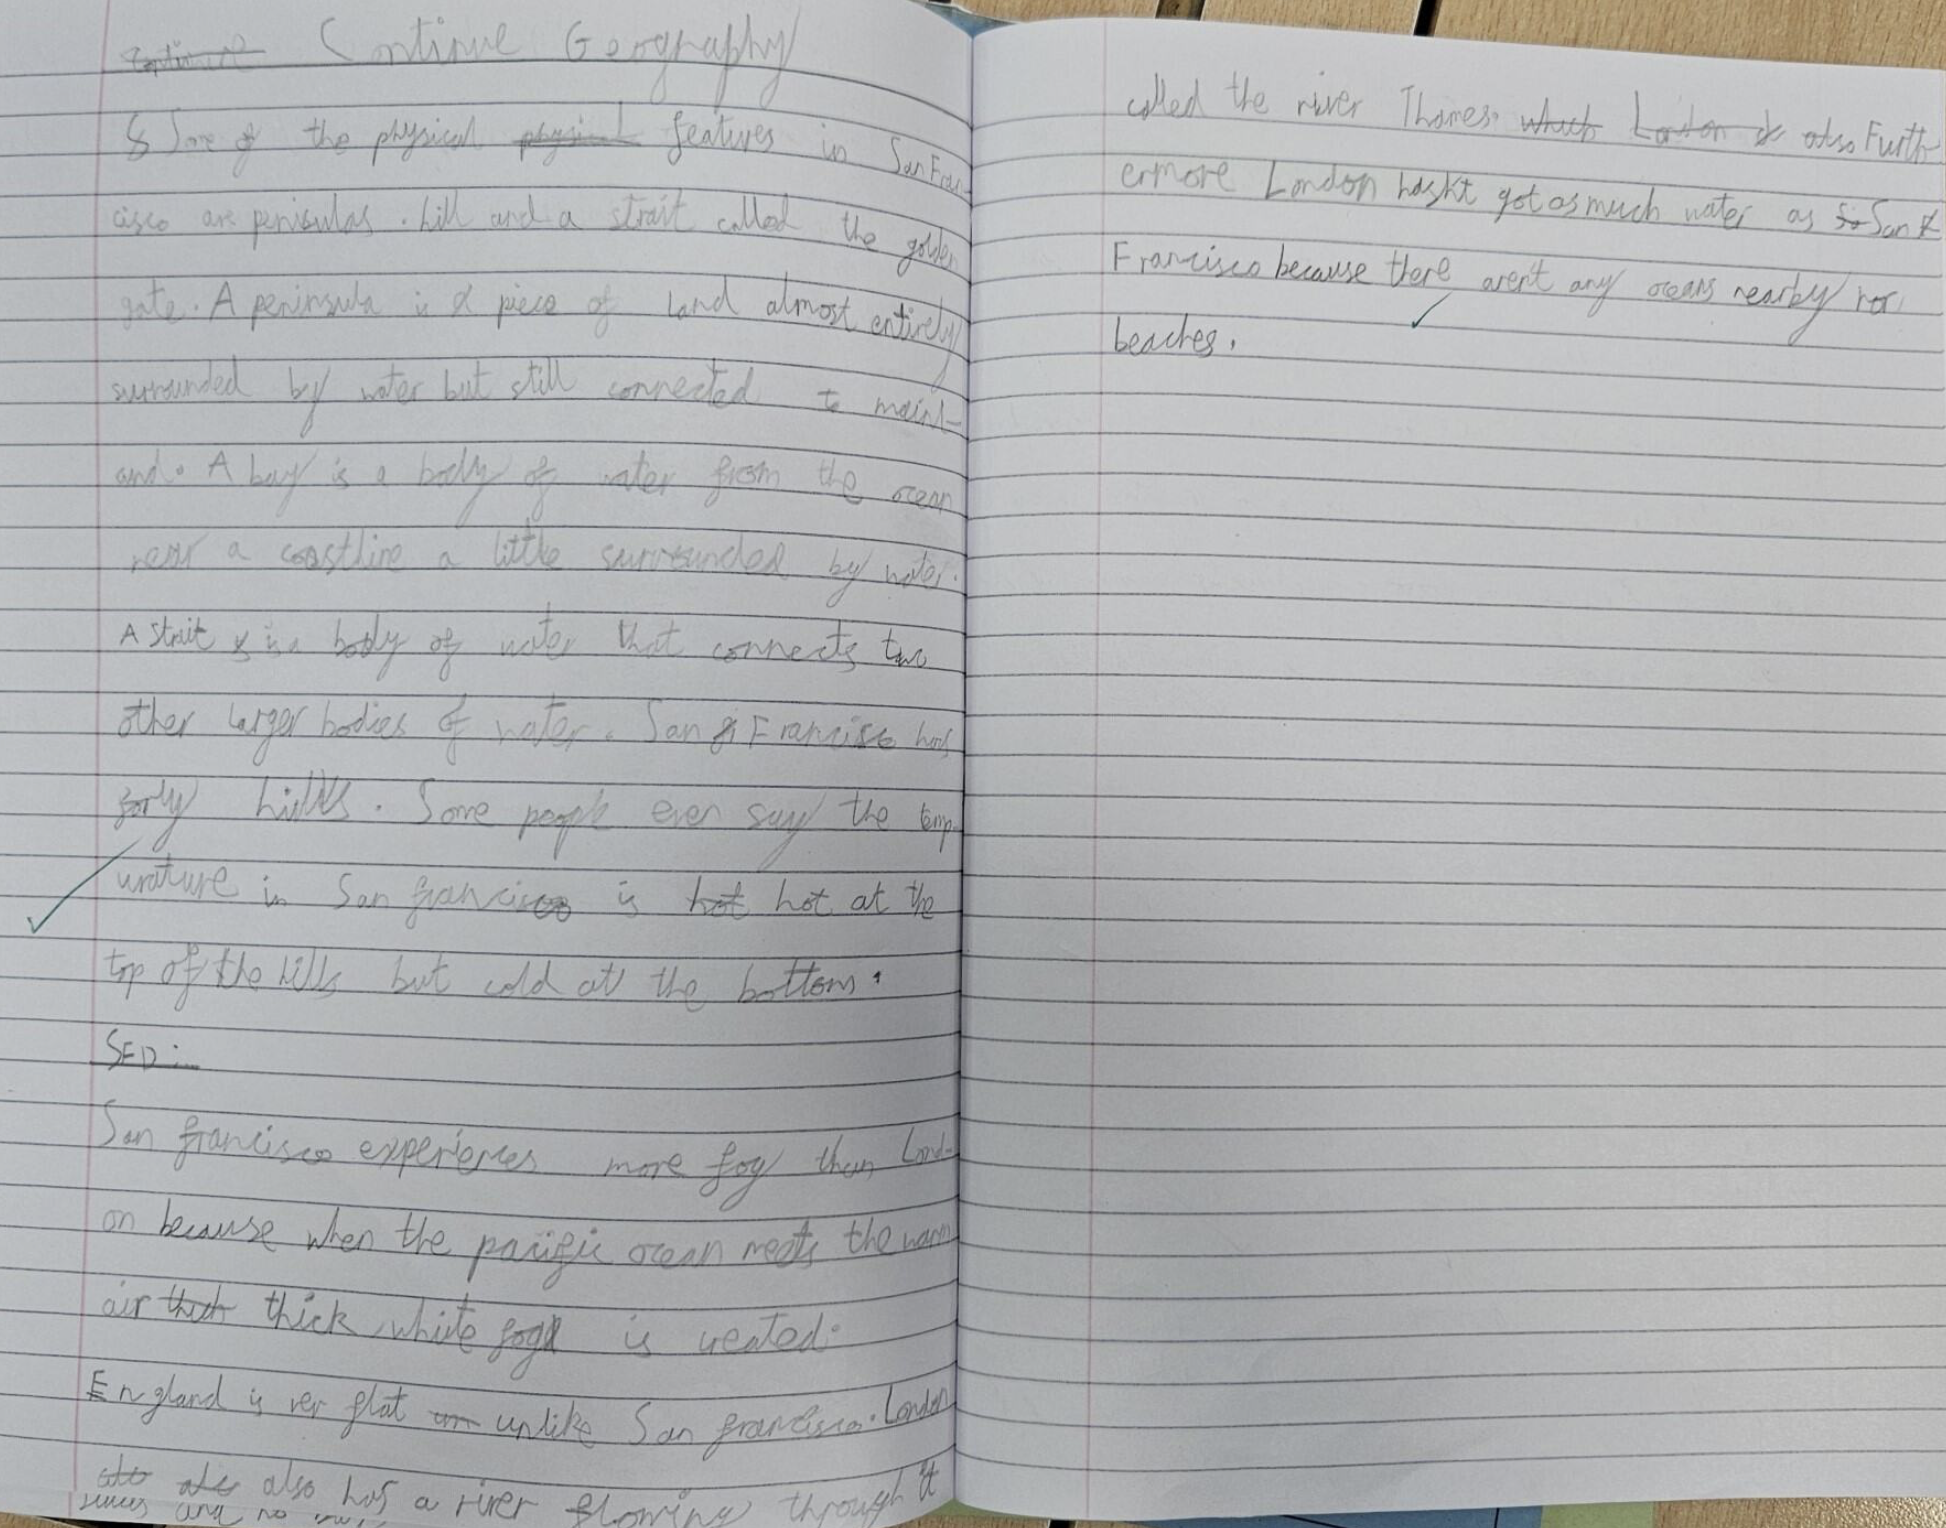 Continue Continue Geography
S Some of the physical physical features in San Fran-
cisco are penisulas. hill and a strait called the golden
gate. A peninsula is a piece of land almost entirely
surrounded by water but still connected to mainl-
and. A bay is a body of water from the ocean
near a coastline a little surrounded by water.
A strait is a body of water that connects two
other larger bodies of water. San Francisco has
forty hills. Some people even say the temp-
urature in San francisco is hot hot at the
top of the hills but cold at the bottom.
SED:
San francisco experiences more fog than Lond-
on because when the pacific ocean meets the warm
air thick thick white fog is created.
England is ver flat un unlike San francisco. London
also also also has a river flowing through it
and no
called the river Thames. which London is also Furth-
ermore London hasnt got as much water as So San F
Francisco because there arent any oceans nearby nor
beaches.